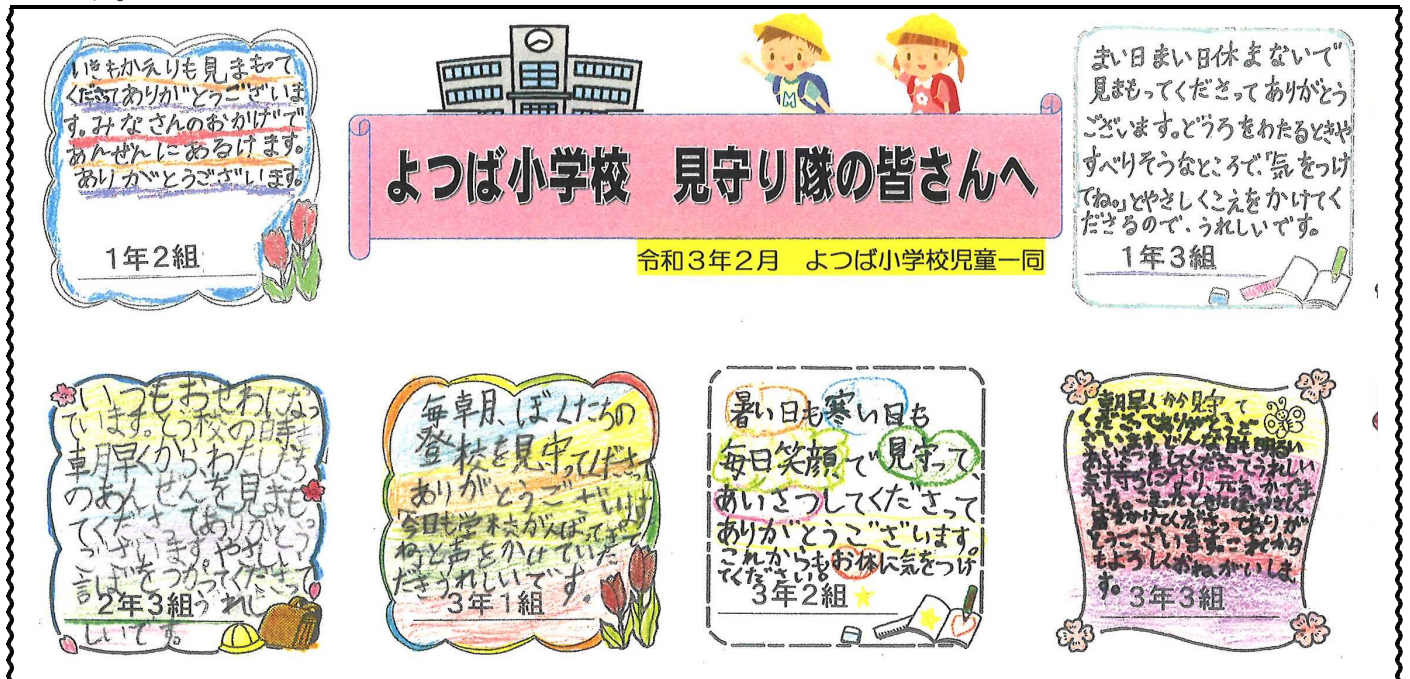 いきもかえりも見まもって
くださってありがとうございま
す。みなさんのおかげで
あんぜんにあるけます。
ありがとうございます。
1年2組
よつば小学校　見守り隊の皆さんへ
令和3年2月　よつば小学校児童一同
まい日まい日休まないで
見まもってくださってありがとう
ございます。どうろをわたるときや
すべりそうなところで、「気をつけ
てね。」とやさしくこえをかけてく
ださるので、うれしいです。
1年3組
いつもおせわになっ
ています。とう校の時
朝早くから、わたしたち
のあんぜんを見まも
てくださってありがとう
ございます。やさしい
言ばをつかってくださって
2年3組
うれし
しいです。
毎朝、ぼくたちの
登校を見守ってくださって
ありがとうございます
今日も学校がんばってきて
ねと声をかけていただ
だきうれしいです。
3年1組
暑い日も寒い日も
毎日笑顔で見守って、
あいさつしてくださって
ありがとうございます。
これからもお体に気をつけ
てください。
3年2組
朝早くから見守って
くださってありがとうご
ざいます。どんな日も明るい
あいさつをしてくださってうれしい
気持ちになり、元気がでま
した。
声をかけてくださってありが
とうございます。これから
もよろしくおねがいしま
す。
3年3組